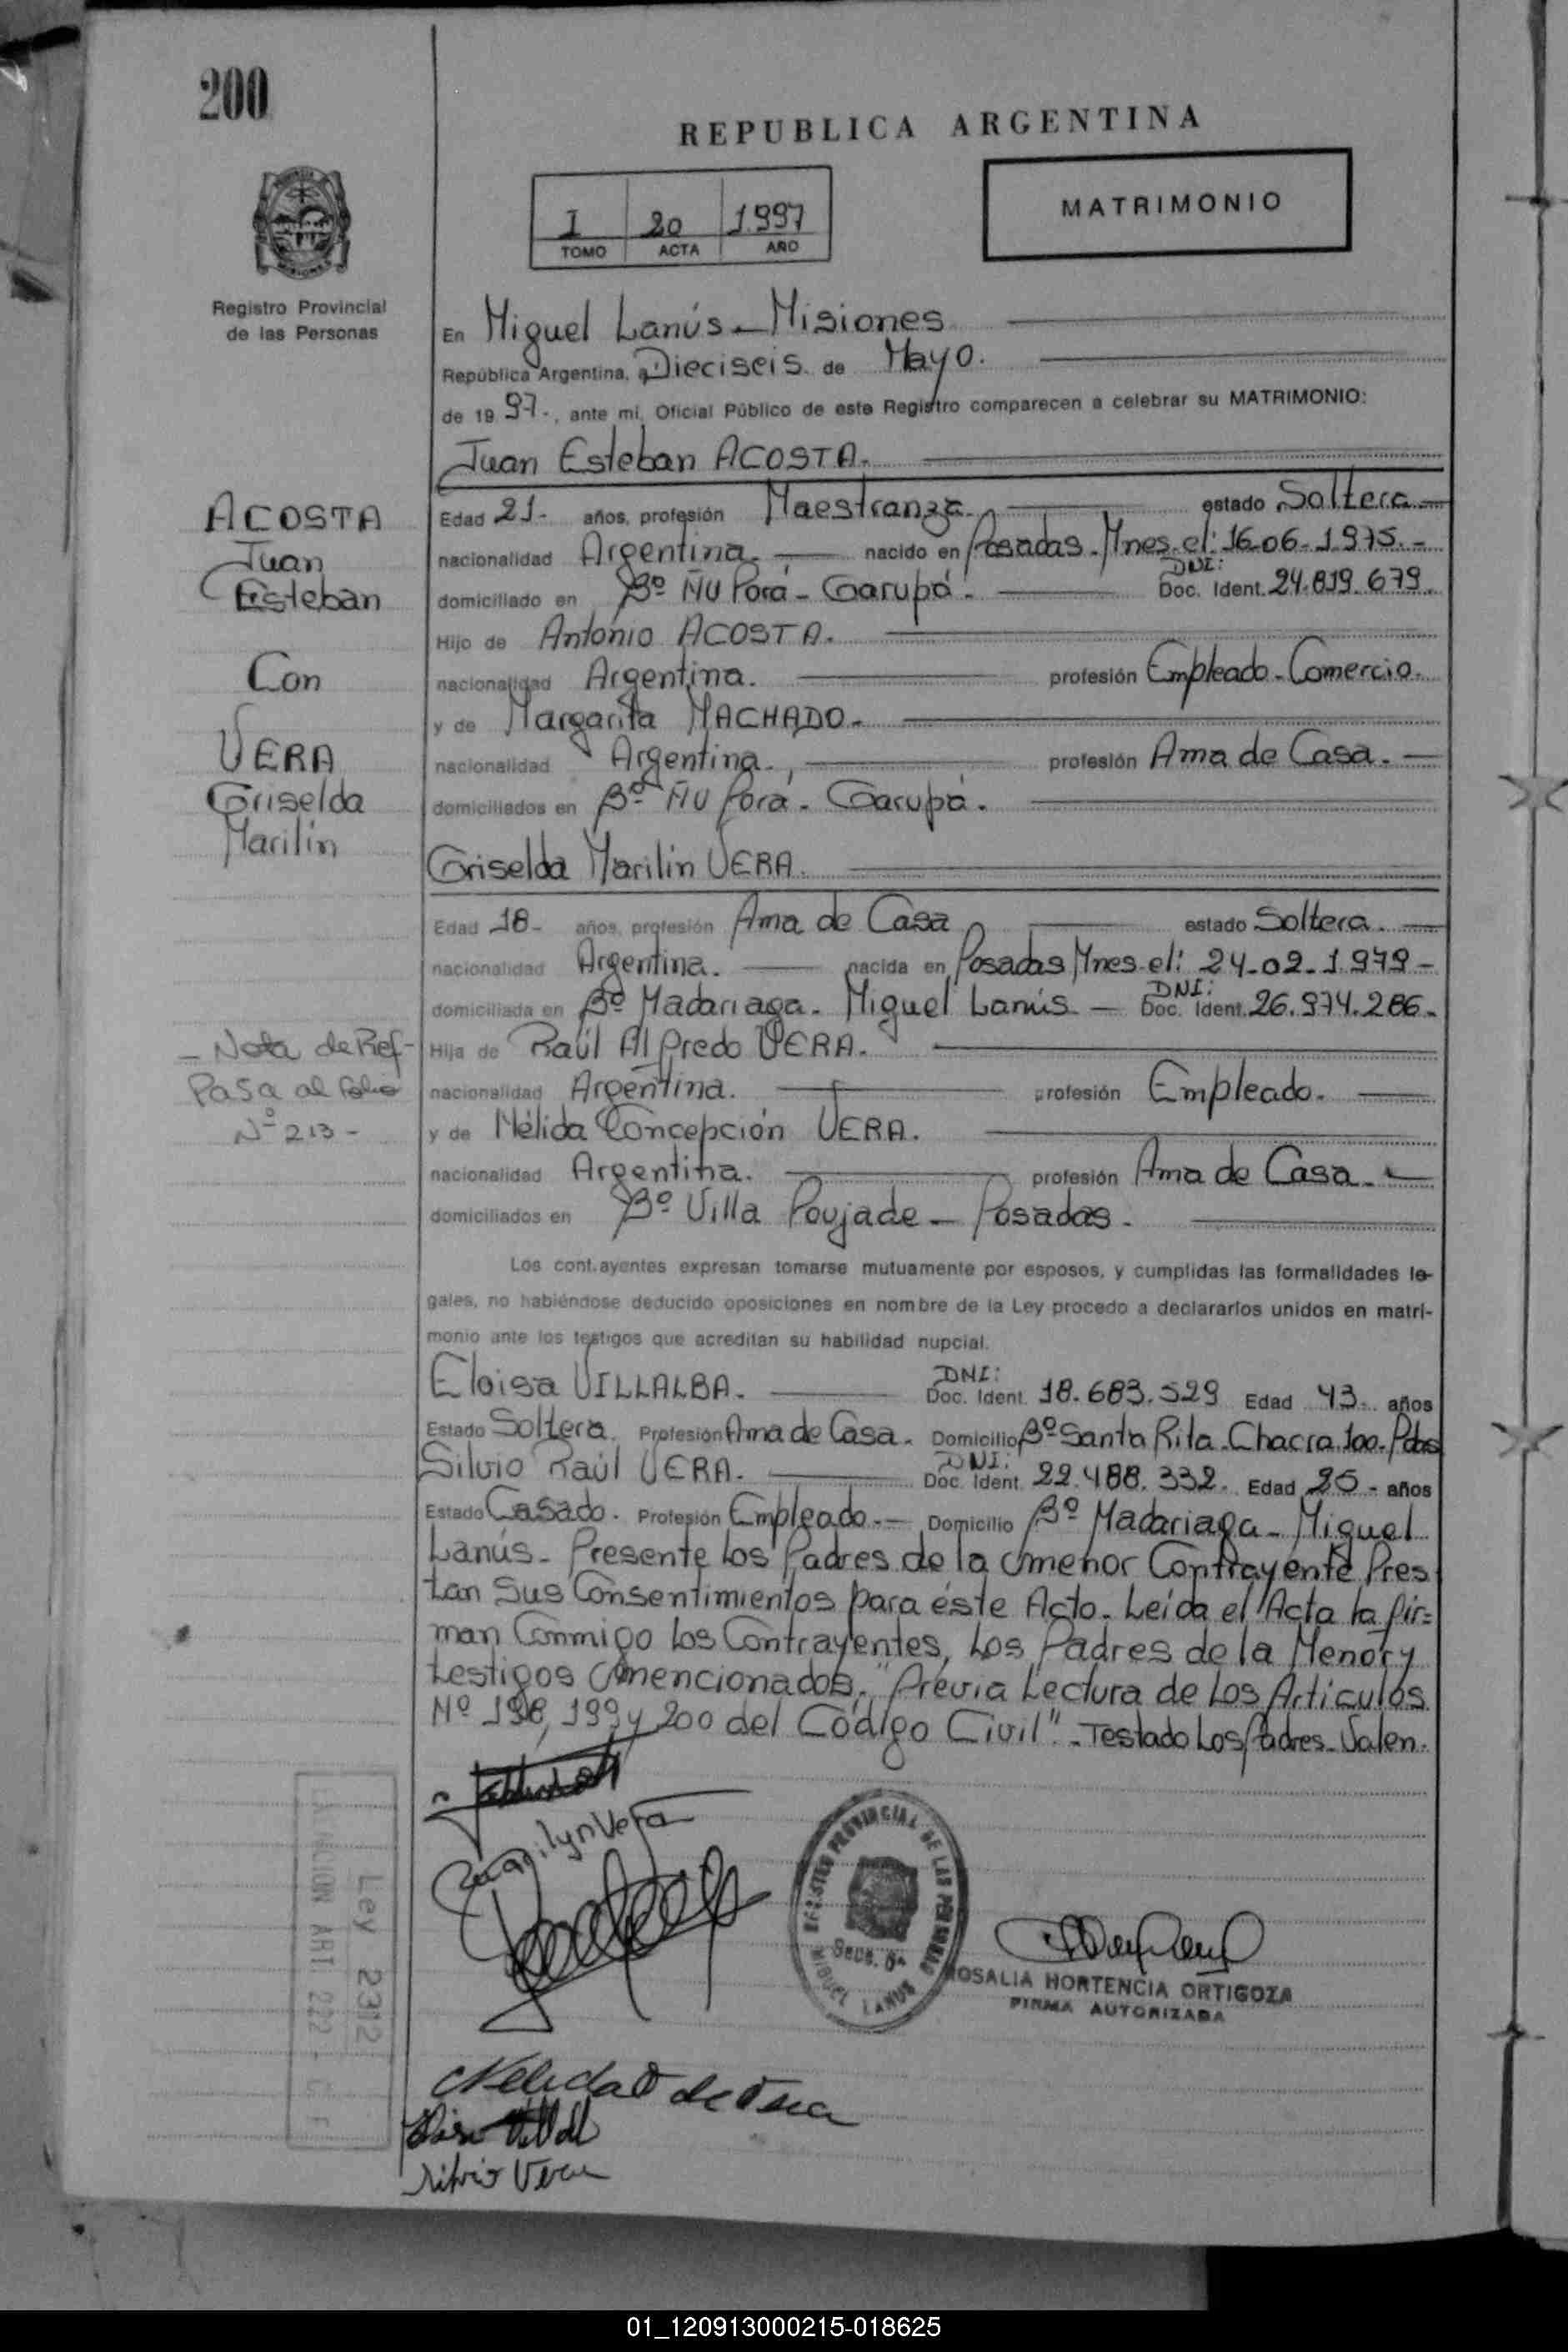 200
REPUBLICA ARGENTINA
I 20 1.997
TOMO ACTA AÑO
MATRIMONIO
Registro Provincial
de las Personas
En Miguel Lanús - Misiones
República Argentina, a Dieciseis de Mayo.
de 19 97-, ante mí, Oficial Público de este Registro comparecen a celebrar su MATRIMONIO:
Juan Esteban ACOSTA.
ACOSTA
Juan
Esteban
Con
VERA
Griselda
Marilin
Edad 21- años, profesión Maestranza. estado Soltero
nacionalidad Argentina. nacido en Posadas - Mnes. el: 16-06-1.975.-
domiciliado en Bº ÑU Porá - Garupá. DNI: Doc. Ident. 24.819.679.
Hijo de Antonio ACOSTA.
nacionalidad Argentina. profesión Empleado - Comercio.
y de Margarita MACHADO.
nacionalidad Argentina. profesión Ama de Casa.
domiciliados en Bº ÑU Porá - Garupá.
Griselda Marilin VERA.
Edad 18- años, profesión Ama de Casa estado Soltera.
nacionalidad Argentina. nacida en Posadas Mnes. el: 24-02-1.979-
domiciliada en Bº Madariaga - Miguel Lanús - DNI: Doc. Ident. 26.974.286.
Hija de Raúl Alfredo VERA.
- Nota de Ref-
Pasa al folio
Nº 213-
nacionalidad Argentina. profesión Empleado.
y de Nélida Concepción VERA.
nacionalidad Argentina. profesión Ama de Casa.
domiciliados en Bº Villa Poujade - Posadas.
Los contrayentes expresan tomarse mutuamente por esposos, y cumplidas las formalidades le-
gales, no habiéndose deducido oposiciones en nombre de la Ley procedo a declararlos unidos en matri-
monio ante los testigos que acreditan su habilidad nupcial.
Eloisa VILLALBA. DNI: Doc. Ident. 18.683.529 Edad 43. años
Estado Soltera. Profesión Ama de Casa. Domicilio Bº Santa Rita - Chacra 100 - Pdas
Silvio Raúl VERA. DNI: Doc. Ident. 22.488.332. Edad 25- años
Estado Casado. Profesión Empleado.- Domicilio Bº Madariaga - Miguel
Lanús - Presente los Padres de la menor Contrayente Pres
tan Sus Consentimientos para éste Acto. Leída el Acta la fir=
man Conmigo los Contrayentes, Los Padres de la Menor y
testigos mencionados. "Previa Lectura de Los Artículos
Nº 198, 199 y 200 del Código Civil". Testado Los Padres - Valen.
Marilyn Vera
REGISTRO PROVINCIAL DE LAS PERSONAS
MIGUEL LANUS
ROSALIA HORTENCIA ORTIGOZA
FIRMA AUTORIZADA
Ley 2312
ART. 222
Silvio Vera
01_120913000215-018625